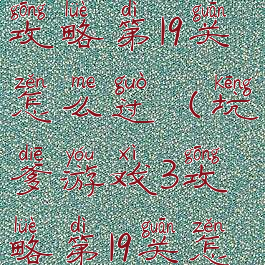 gōng lüè dì guān
攻略第19关
zěn me guò kēng
怎么过(坑
diē yóu xì gōng
爹游戏3攻
lüè dì guān zěn
略第19关怎